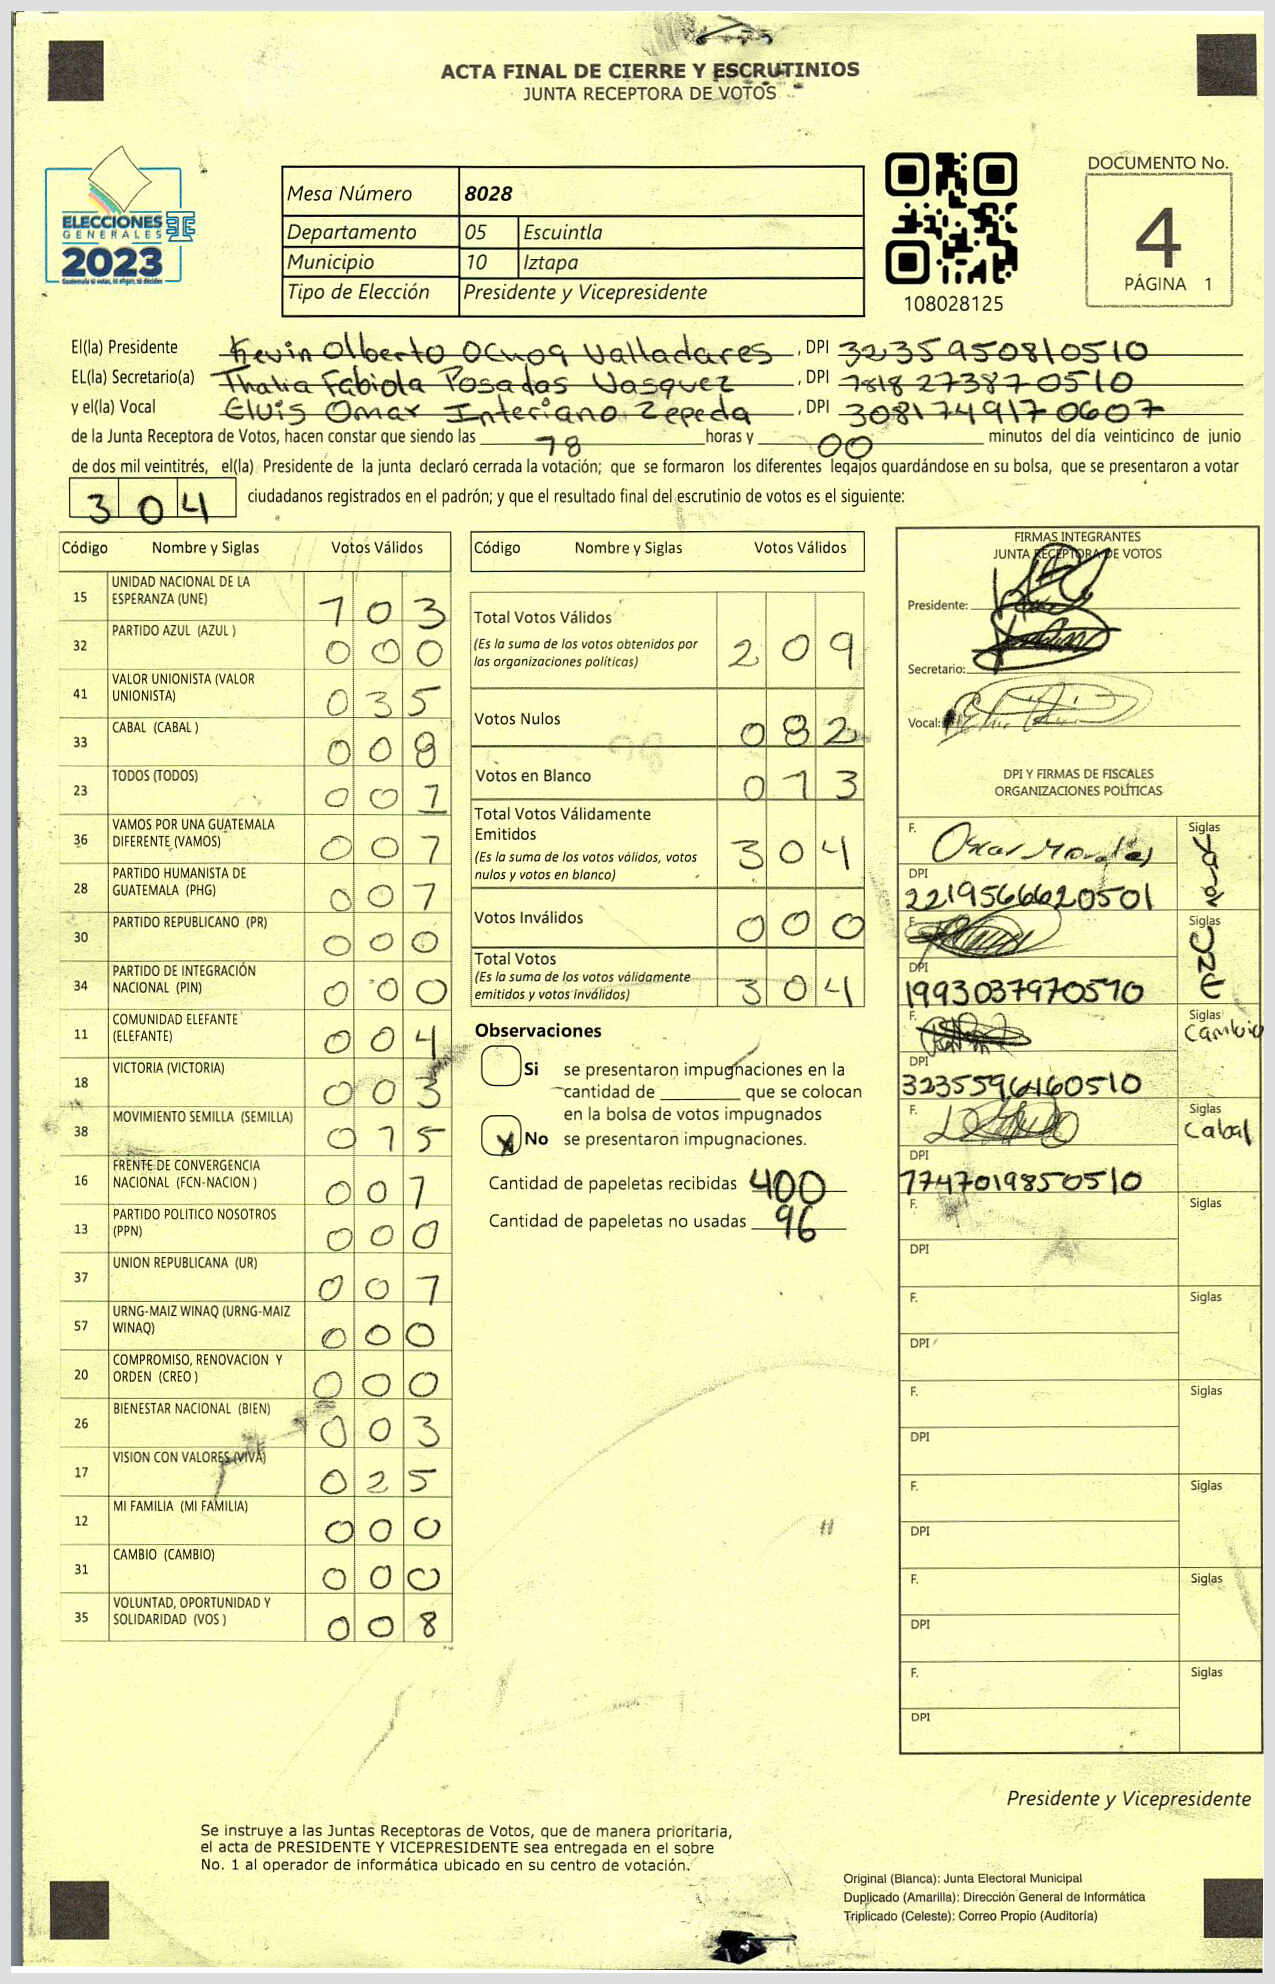 ACTA FINAL DE CIERRE Y ESCRUTINIOS
JUNTA RECEPTORA DE VOTOS
ELECCIONES
GENERALES
2023
Guatemala tú votas, tú eliges, tú decides
Mesa Número 8028
Departamento 05 Escuintla
Municipio 10 Iztapa
Tipo de Elección Presidente y Vicepresidente
108028125
DOCUMENTO No.
4
PÁGINA 1
El(la) Presidente Kevin Alberto Ochoa Valladares, DPI 3235950810510
EL(la) Secretario(a) Thalia Fabiola Posadas Vasquez, DPI 1818 27387 0510
y el(la) Vocal Elvis Omar Interiano Zepeda, DPI 3081749170607
de la Junta Receptora de Votos, hacen constar que siendo las 18 horas y 00 minutos del día veinticinco de junio
de dos mil veintitrés, el(la) Presidente de la junta declaró cerrada la votación; que se formaron los diferentes legajos quardándose en su bolsa, que se presentaron a votar
304 ciudadanos registrados en el padrón; y que el resultado final del escrutinio de votos es el siguiente:
Código Nombre y Siglas Votos Válidos
15 UNIDAD NACIONAL DE LA ESPERANZA (UNE) 103
32 PARTIDO AZUL (AZUL ) 000
41 VALOR UNIONISTA (VALOR UNIONISTA) 035
33 CABAL (CABAL ) 008
23 TODOS (TODOS) 001
36 VAMOS POR UNA GUATEMALA DIFERENTE (VAMOS) 001
28 PARTIDO HUMANISTA DE GUATEMALA (PHG) 001
30 PARTIDO REPUBLICANO (PR) 000
34 PARTIDO DE INTEGRACIÓN NACIONAL (PIN) 000
11 COMUNIDAD ELEFANTE (ELEFANTE) 004
18 VICTORIA (VICTORIA) 003
38 MOVIMIENTO SEMILLA (SEMILLA) 015
16 FRENTE DE CONVERGENCIA NACIONAL (FCN-NACION ) 001
13 PARTIDO POLITICO NOSOTROS (PPN) 000
37 UNION REPUBLICANA (UR) 001
57 URNG-MAIZ WINAQ (URNG-MAIZ WINAQ) 000
20 COMPROMISO, RENOVACION Y ORDEN (CREO ) 000
26 BIENESTAR NACIONAL (BIEN) 003
17 VISION CON VALORES (VIVA) 025
12 MI FAMILIA (MI FAMILIA) 000
31 CAMBIO (CAMBIO) 000
35 VOLUNTAD, OPORTUNIDAD Y SOLIDARIDAD (VOS ) 008
Código Nombre y Siglas Votos Válidos
Total Votos Válidos 209
(Es la suma de los votos obtenidos por
las organizaciones políticas)
Votos Nulos 082
Votos en Blanco 013
Total Votos Válidamente
Emitidos 304
(Es la suma de los votos válidos, votos
nulos y votos en blanco)
Votos Inválidos 000
Total Votos 304
(Es la suma de los votos válidamente
emitidos y votos inválidos)
Observaciones
Si se presentaron impugnaciones en la
cantidad de ________ que se colocan
en la bolsa de votos impugnados
X No se presentaron impugnaciones.
Cantidad de papeletas recibidas 400
Cantidad de papeletas no usadas 96
FIRMAS INTEGRANTES
JUNTA RECEPTORA DE VOTOS
Presidente:
Secretario:
Vocal:
DPI Y FIRMAS DE FISCALES
ORGANIZACIONES POLÍTICAS
F. Oscar Morales Siglas
DPI
2219566620501
F. Siglas
DPI
1993037970510
F. Siglas Cambio
DPI
3235596460510
F. Siglas Cabal
DPI
1747019850510
F. Siglas
DPI
F. Siglas
DPI
F. Siglas
DPI
F. Siglas
DPI
F. Siglas
DPI
F. Siglas
DPI
Presidente y Vicepresidente
Se instruye a las Juntas Receptoras de Votos, que de manera prioritaria,
el acta de PRESIDENTE Y VICEPRESIDENTE sea entregada en el sobre
No. 1 al operador de informática ubicado en su centro de votación.
Original (Blanca): Junta Electoral Municipal
Duplicado (Amarilla): Dirección General de Informática
Triplicado (Celeste): Correo Propio (Auditoría)